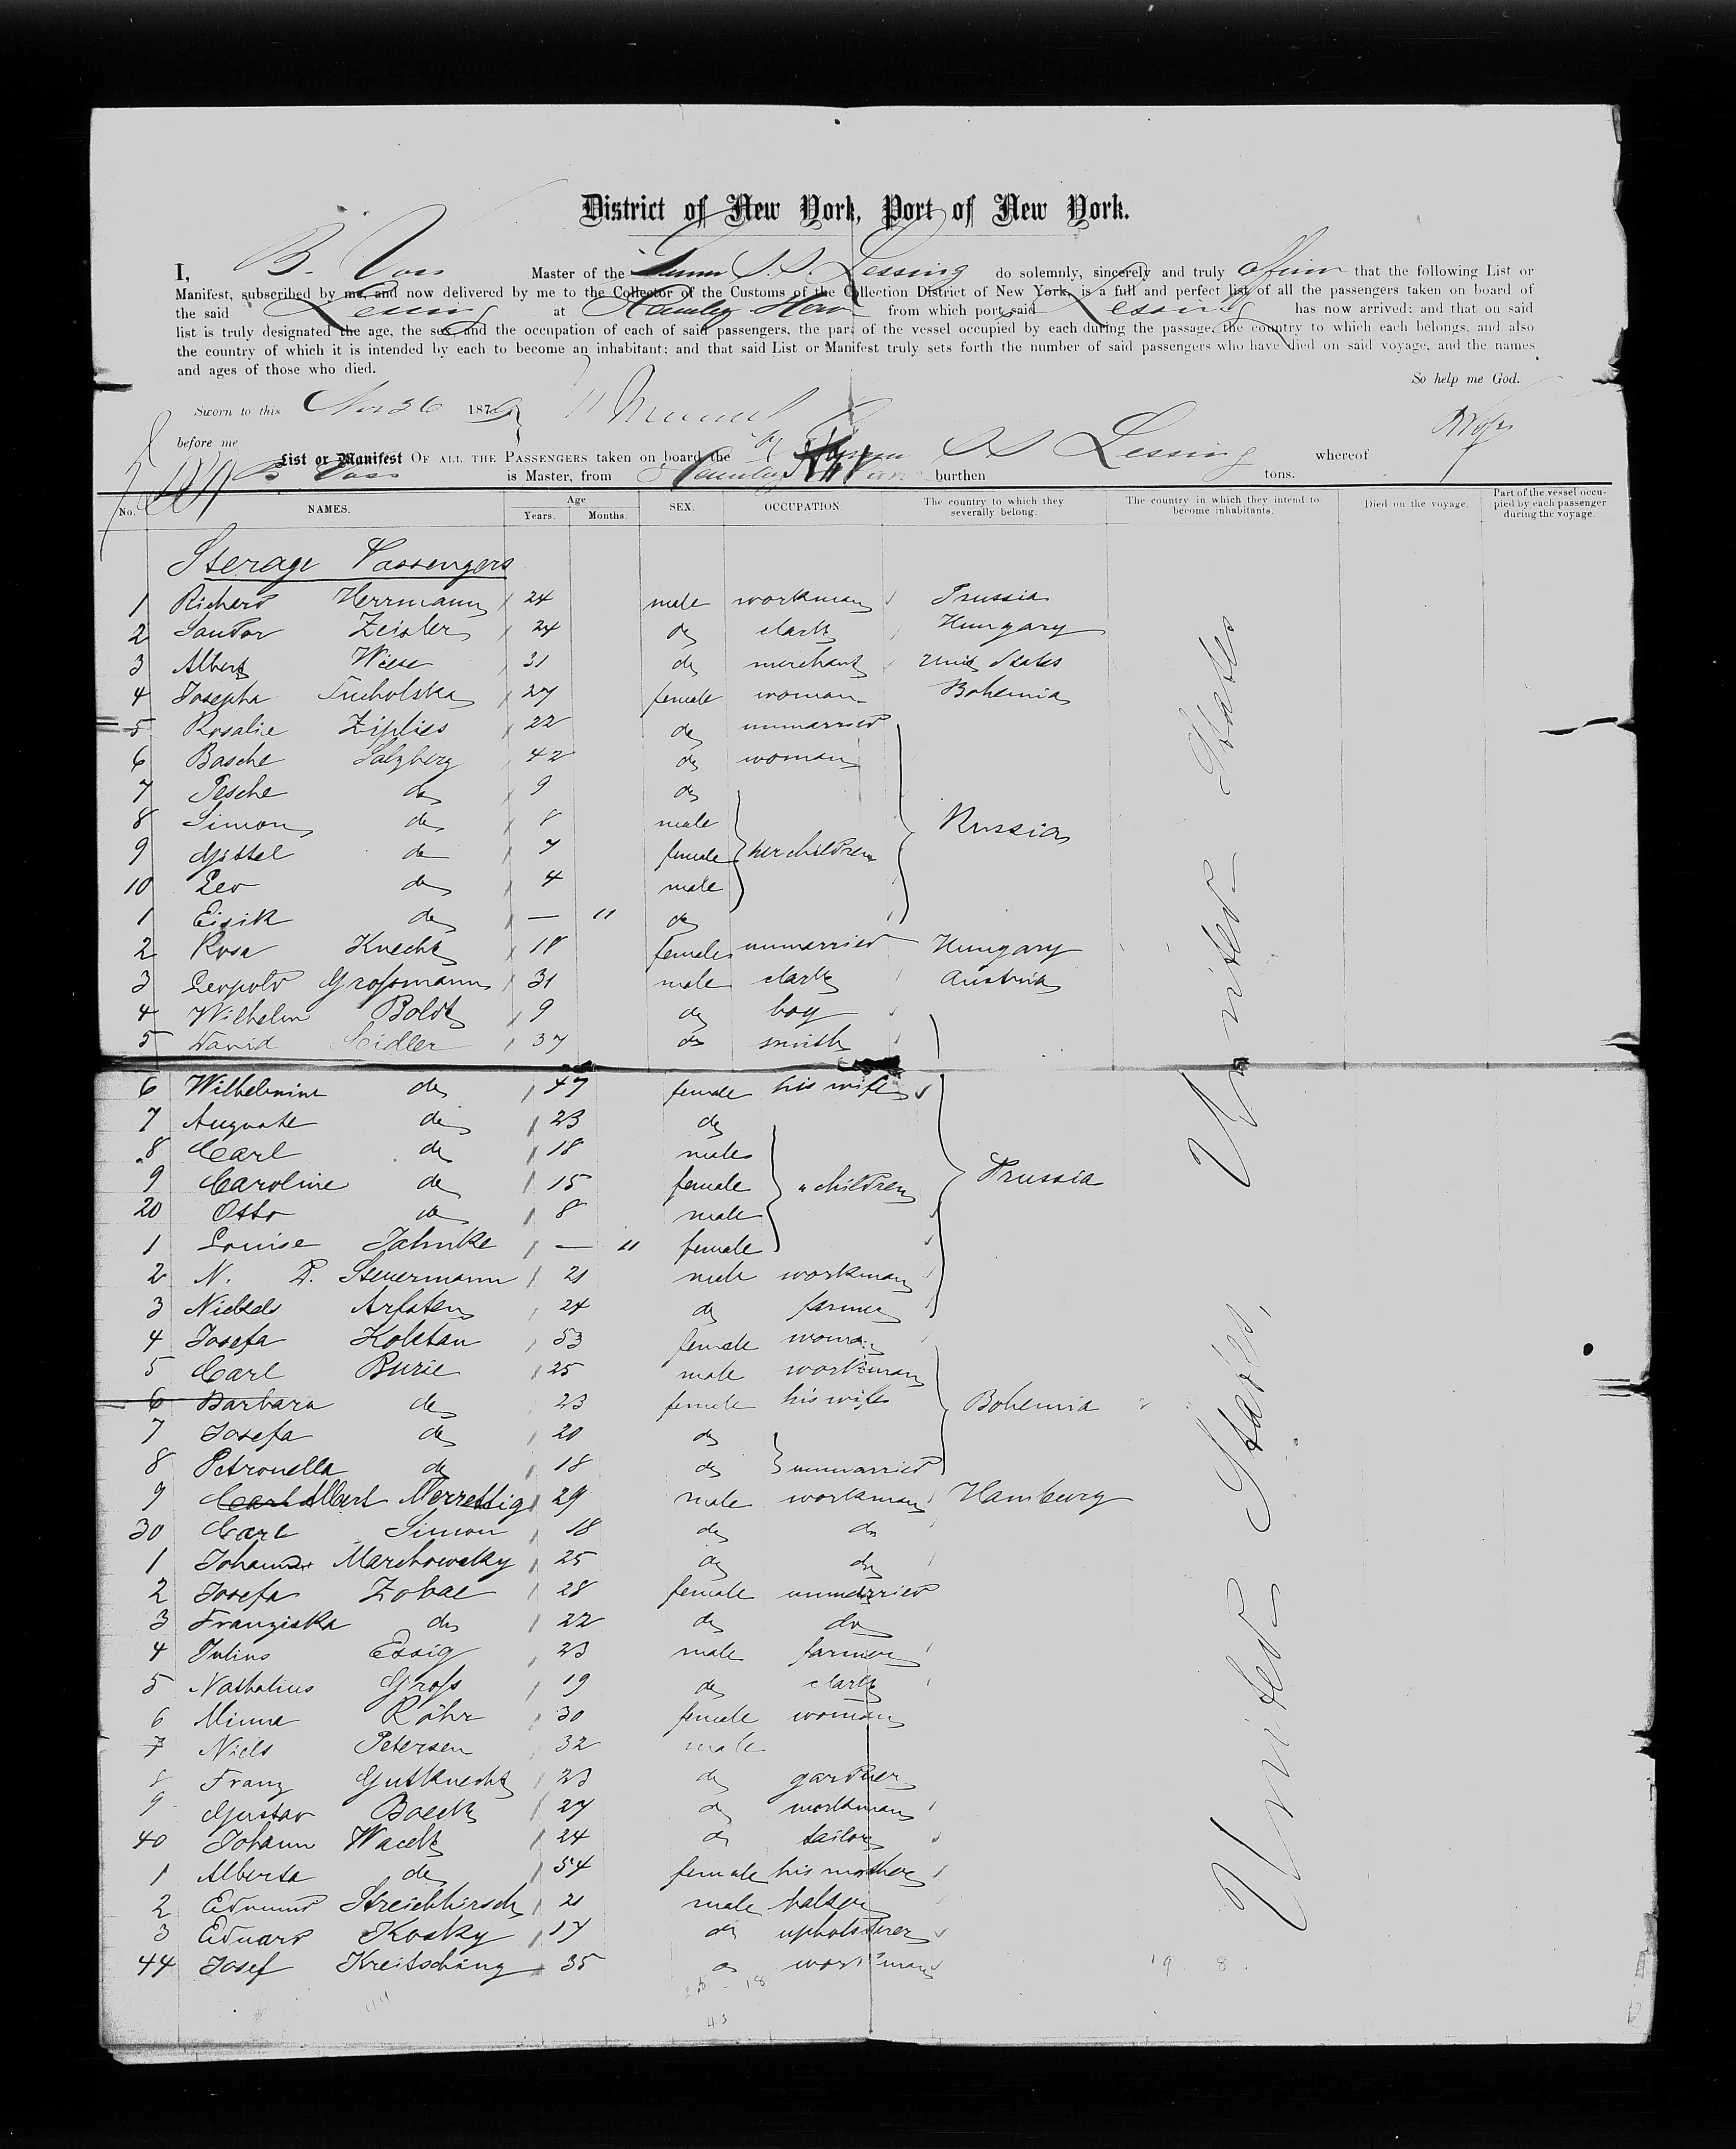 District of New York, Port of New York.
I, B. Voss Master of the S.S. Lessing do solemnly, sincerely and truly affirm that the following List or
Manifest, subscribed by me, and now delivered by me to the Collector of the Customs of the Collection District of New York, is a full and perfect list of all the passengers taken on board of
the said Lessing at from which port said Lessing has now arrived; and that on said
list is truly designated the age, the sex and the occupation of each of said passengers, the part of the vessel occupied by each during the passage, the country to which each belongs, and also
the country of which it is intended by each to become an inhabitant; and that said List or Manifest truly sets forth the number of said passengers who have died on said voyage, and the names
and ages of those who died.
So help me God.
Sworn to this Nov 26 187
before me
List or Manifest OF ALL THE PASSENGERS taken on board the SS Lessing whereof
B Voss is Master, from burthen tons.
No. NAMES. Age Years. Months. SEX. OCCUPATION. The country to which they severally belong. The country in which they intend to become inhabitants. Died on the voyage. Part of the vessel occupied by each passenger during the voyage.
Sterage Passengers
1 Richard Herrmann 24 male workman Prussia
2 Sandor Zeisler 24 do clark Hungary
3 Albert Wiese 31 do merchant States
4 Josepha Tucholska 27 female woman Bohemia
5 Rosalie Zipliss 22 do unmarried
6 Basche Salzberg 42 do woman
7 Pesche do 9 do
8 Simon do 8 male
9 Gittel do 7 female her children Russia
10 Leo do 4 male
1 Eisik do — 11 do
2 Rosa Knecht 18 female unmarried Hungary
3 Leopold Grossmann 31 male clark Austria
4 Wilhelm Boldt 9 do boy
5 David Seidler 37 do smith
6 Wilhelmine do 47 female his wife
7 Auguste do 23 do
8 Carl do 18 male
9 Caroline do 15 female " children Prussia
20 Otto do 8 male
1 Louise Jahnke — 11 female
2 N. P. Steuermann 21 male workman
3 Nickels Arfsten 24 do farmer
4 Josefa Koletan 53 female woman
5 Carl Buzie 25 male workman
6 Barbara do 23 female his wife Bohemia
7 Josefa do 20 do
8 Petronella do 18 do unmarried
9 Albert Merrettig 29 male workman Hamburg
30 Carl Simon 18 do do
1 Johann Marchowsky 25 do do
2 Josefa Zobal 28 female unmarried
3 Franziska do 22 do do
4 Julius Essig 23 male farmer
5 Nathalius Gross 19 do clark
6 Minna Röhr 30 female woman
7 Niels Petersen 32 male
8 Franz Gutknecht 23 do gardner
9 Gustav Boeck 27 do workman
40 Johann Wacek 24 do tailor
1 Alberta do 54 female his mother
2 Edmund Streichhirsch 21 male
3 Eduard Kosky 17 do upholsterer
44 Josef Kreitsching 35 do workman
United States
United States,